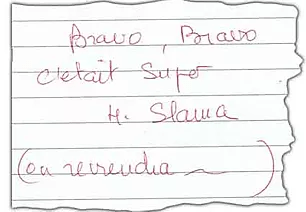 Bravo, Bravo
c'etait Super
H. Slama
(on reviendra ~)